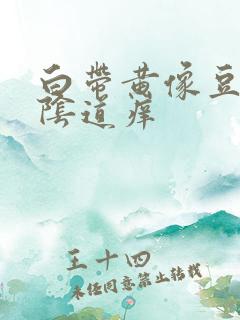 白带黄像豆
陰道痒
王十四
未经同意禁止转载